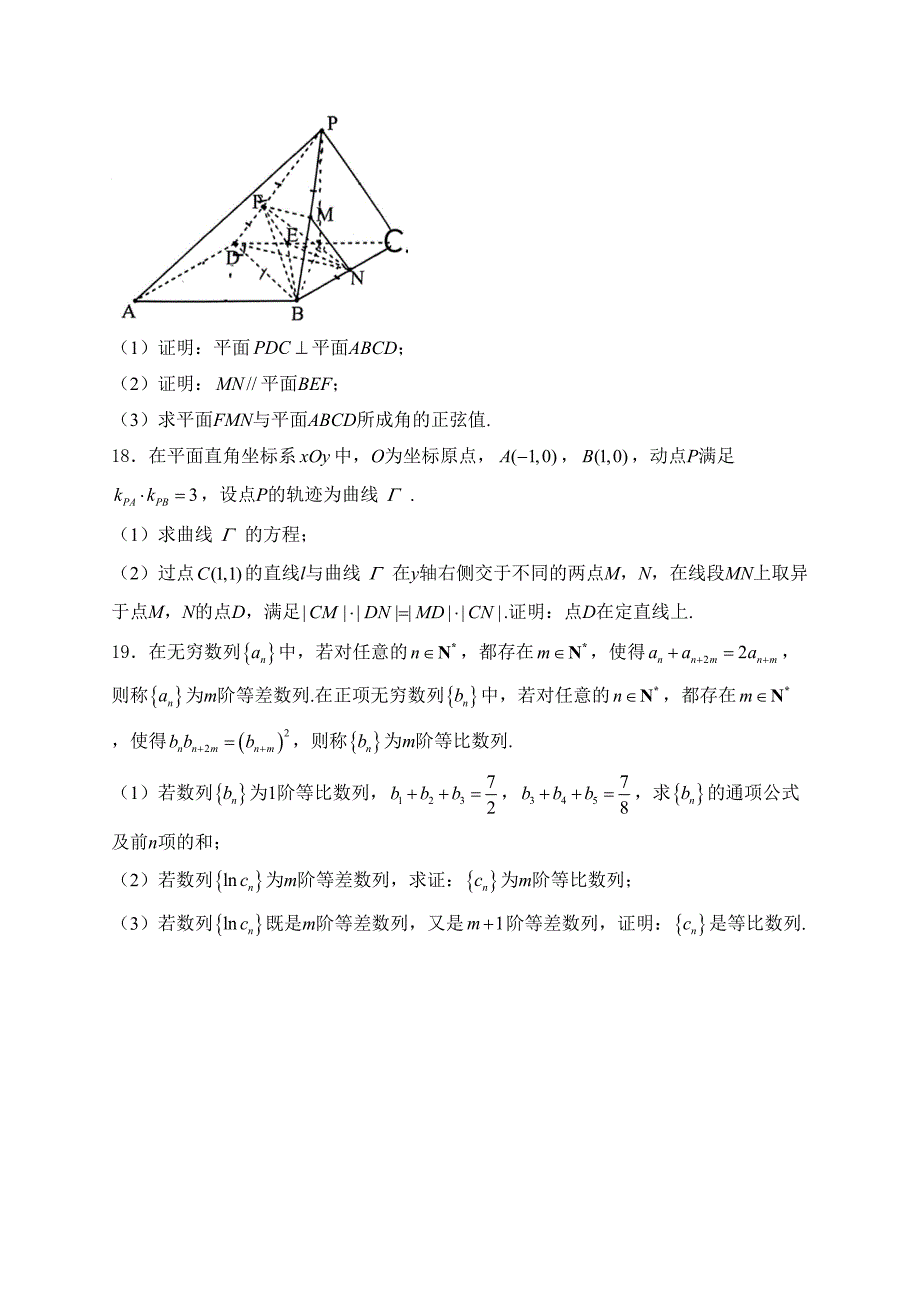 P
F
M
E
D
C.
N
A
B
(1)证明:平面PDC⊥平面ABCD;
(2)证明:MN//平面BEF;
(3)求平面FMN与平面ABCD所成角的正弦值.
18.在平面直角坐标系xOy中,O为坐标原点,A(−1,0),B(1,0),动点P满足
k_{PA}·k_{PB}=3,设点P的轨迹为曲线Γ.
(1)求曲线Γ的方程;
(2)过点C(1,1)的直线l与曲线Γ在y轴右侧交于不同的两点M,N,在线段MN上取异
于点M,N的点D,满足|CM|·|DN|=|MD|·|CN|.证明:点D在定直线上.
19.在无穷数列{a_n}中,若对任意的n∈N*,都存在m∈N*,使得a_n+a_{n+2m}=2a_{n+m},
则称{a_n}为m阶等差数列.在正项无穷数列{b_n}中,若对任意的n∈N*,都存在m∈N*
,使得b_nb_{n+2m}=(b_{n+m})^2,则称{b_n}为m阶等比数列.
(1)若数列{b_n}为1阶等比数列,b_1+b_2+b_3=7/2,b_3+b_4+b_5=7/8,求{b_n}的通项公式
及前n项的和;
(2)若数列{ln c_n}为m阶等差数列,求证:{c_n}为m阶等比数列;
(3)若数列{ln c_n}既是m阶等差数列,又是m+1阶等差数列,证明:{c_n}是等比数列.